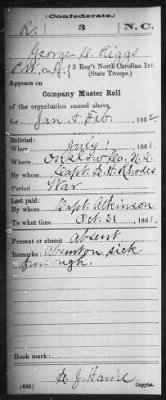 (Confederate.)
R. 3 N.C.
George D. Riggs
Pvt, Co. G, 3 Reg't North Carolina Inf.
(State Troops.)
Appears on
Company Muster Roll
of the organization named above,
for Jan & Feb., 1862.
Enlisted:
When July 1, 1861.
Where Onslow Co. N.C.
By whom Capt. E. H. Rhodes
Period War
Last paid:
By whom Capt. Atkinson
To what time Oct. 31, 1861.
Present or absent Absent
Remarks: Absent on sick
furlough.
Book mark:
(642)
Copyist.